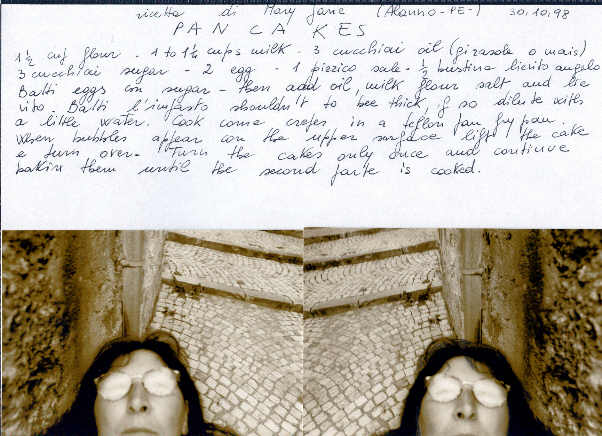 ricetta di Mary Jane (Alanno-PE-) 30,10,98
PAN CAKES
1 ½ cup flour . 1 to 1¼ cups milk . 3 cucchiai oil (girasole o mais)
3 cucchiai sugar - 2 egg . 1 pizzico sale . ½ bustina lievito angelo
Batti eggs con sugar - then add oil, milk flour salt and lie
vito. Batti l'impasto shouldn't to bee thick, if so dilute with
a little water. Cook come crepes in a teflon pan fry pan.
When bubbles appear on the upper surface lift the cake
e turn over. Turn the cakes only once and continue
bakin them until the second parte is cooked.